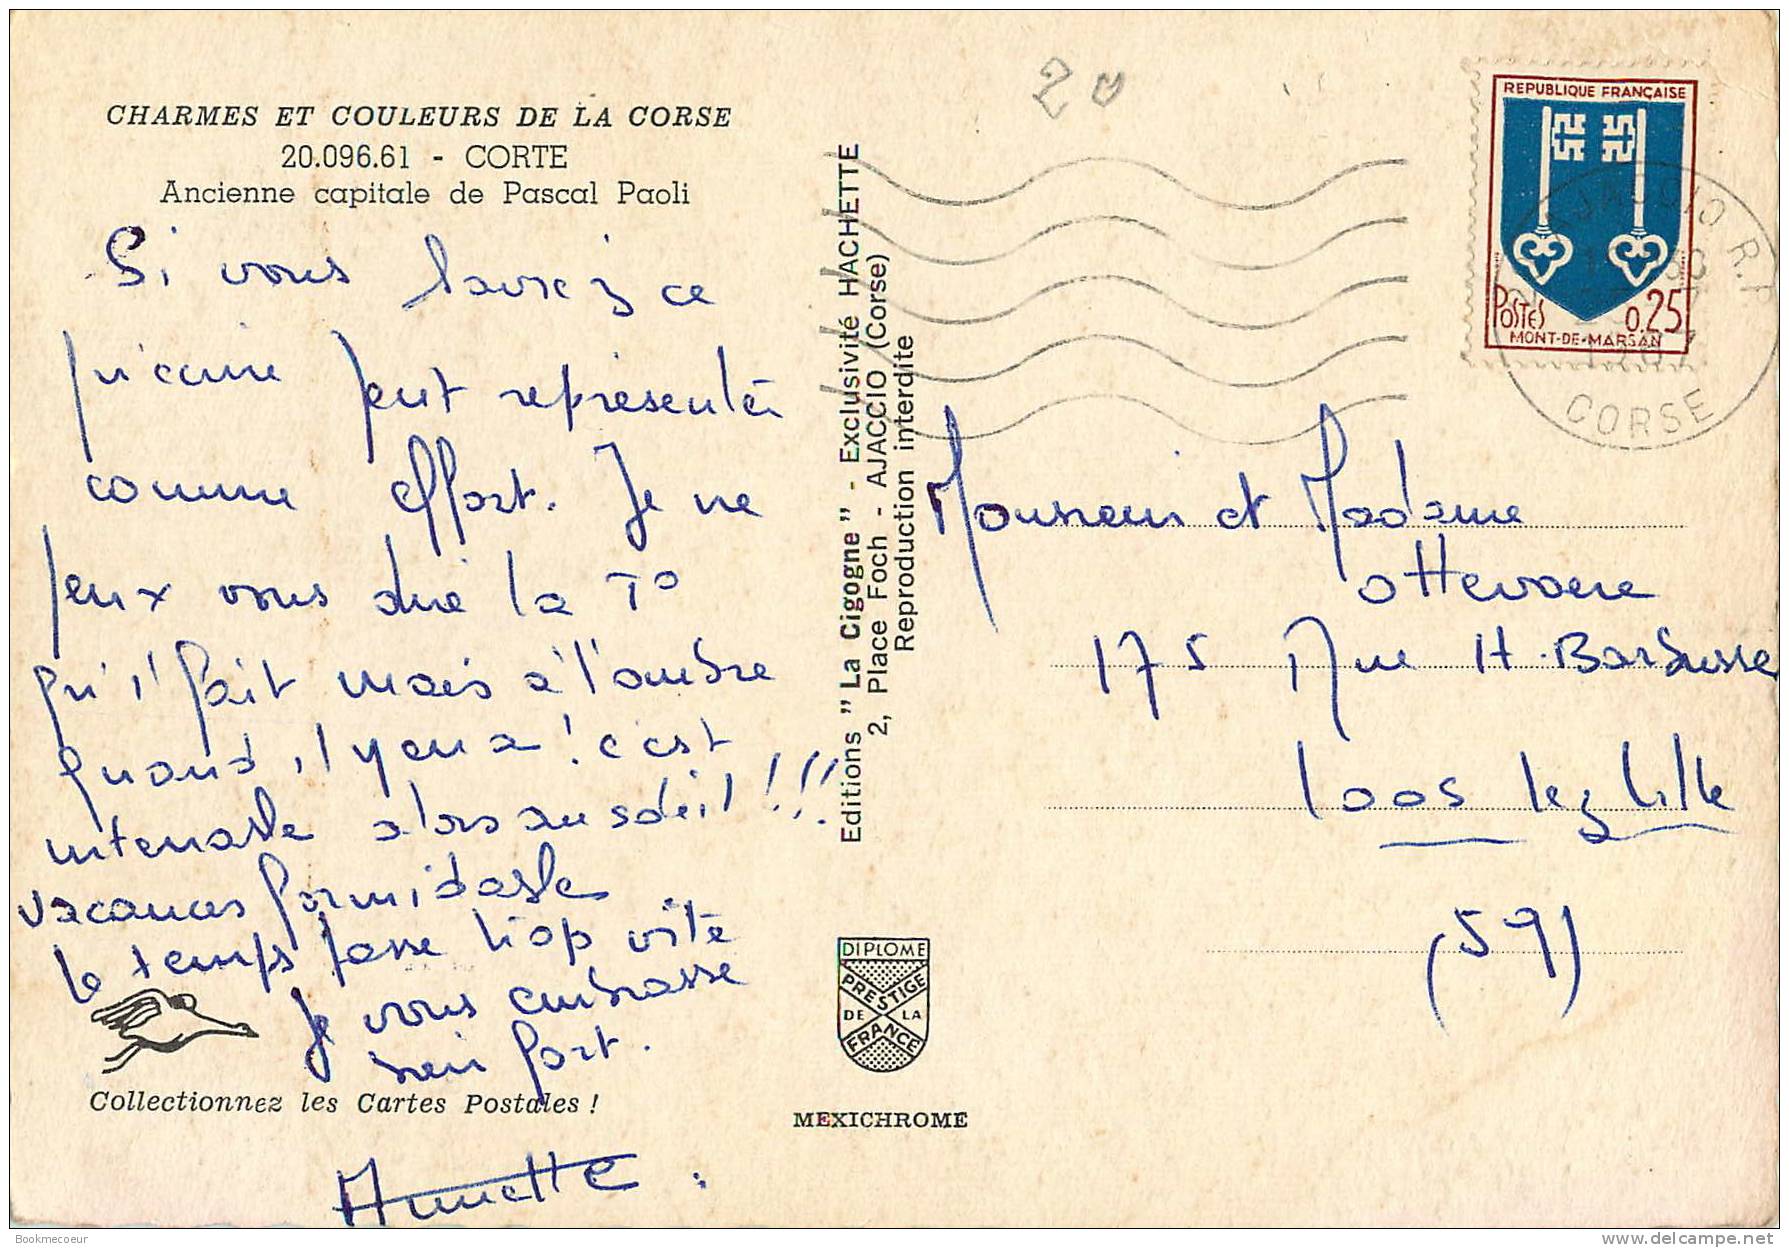 CHARMES ET COULEURS DE LA CORSE
20.096.61 - CORTE
Ancienne capitale de Pascal Paoli
Si vous saviez ce
qu'écrire peut représenter
comme effort. Je ne
peux vous dire la T°
qu'il fait mais à l'ombre
quand il y en a! c'est
intenable alors au soleil!!!
vacances formidables
le temps passe trop vite
Je vous embrasse
bien fort.
Collectionnez les Cartes Postales !
Annette
Editions "La Cigogne" - Exclusivité HACHETTE
2, Place Foch - AJACCIO (Corse)
Reproduction interdite
DIPLOME
PRESTIGE
DE LA
FRANCE
MEXICHROME
20
REPUBLIQUE FRANÇAISE
POSTES 0.25
MONT-DE-MARSAN
AJACCIO R.P.
CORSE
Monsieur et Madame
Ottevaere
175 Rue H. Barbusse
Loos lez Lille
(59)
Bookmecoeur
www.delcampe.net